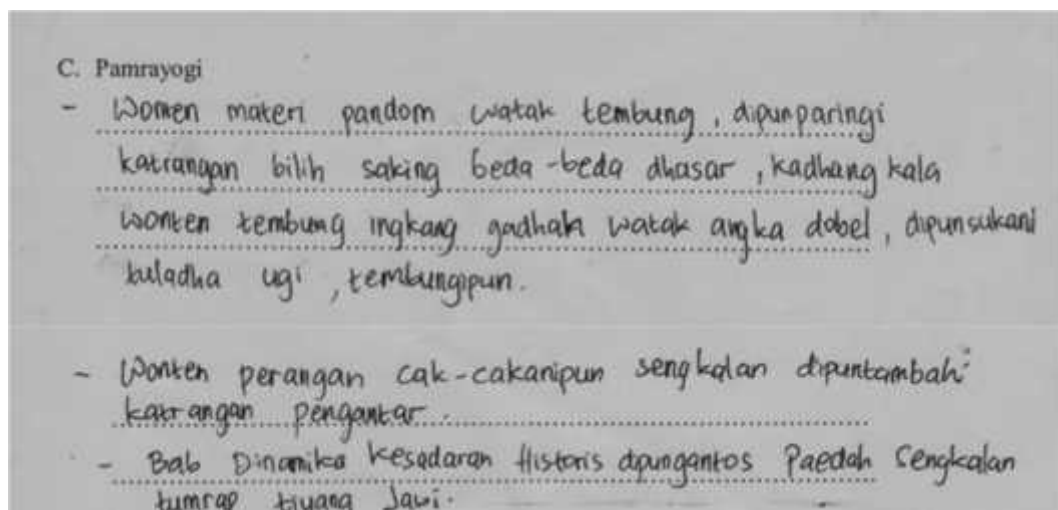 C. Pamrayogi
- Wonten materi pandom watak tembung, dipunparingi
katrangan bilih saking beda-beda dhasar, kadhang kala
wonten tembung ingkang gadhah watak angka dobel, dipunsukani
tuladha ugi, tembungipun.
- Wonten perangan cak-cakanipun sengkalan dipuntambahi
katrangan pengantar.
- Bab Dinamika Kesadaran Historis dipungantos Paedah Sengkalan
tumrap tiyang Jawi.